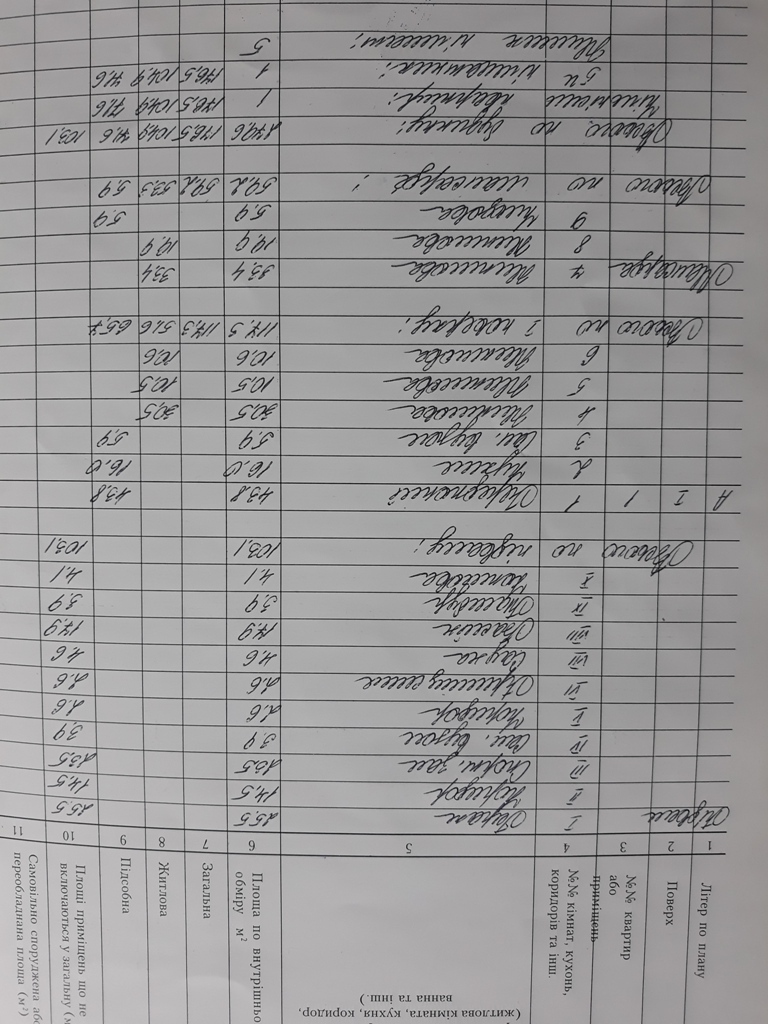 (житлова кімната, кухня, коридор,
ванна та інш.)
Літер по плану
Поверх
№№ квартир
або
приміщень
№№ кімнат, кухонь,
коридорів та інш.
Площа по внутрішньо
обміру м²
Загальна
Житлова
Підсобна
Площі приміщень що не
включаються у загальну (м
Самовільно споруджена або
переобладнана площа (м²)
1 2 3 4 5 6 7 8 9 10 11
Підвал I Гараж 25,5 25,5
II Коридор 14,5 14,5
III Спорт. зал 23,5 23,5
IV Сан. вузол 3,9 3,9
V Коридор 2,6 2,6
VI Приміщення 2,6 2,6
VII Сауна 4,6 4,6
VIII Басейн 17,9 17,9
IX Тамбур 3,9 3,9
X 4,1 4,1
Всього по підвалу: 103,1 103,1
А I 1 1 Передпокій 43,8 43,8
2 Кухня 16,0 16,0
3 Сан. вузол 5,9 5,9
4 Житлова 30,5 30,5
5 Житлова 10,5 10,5
6 Житлова 10,6 10,6
Всього по I поверху: 117,3 117,3 51,6 65,7
Мансарда 7 Житлова 33,4 33,4
8 Житлова 19,9 19,9
9 5,9 5,9
Всього по мансарді: 59,2 59,2 53,3 5,9
Всього по будинку: 279,6 176,5 104,9 71,6 103,1
Кількість квартир: 1 176,5 104,9 71,6
5и кімнатних: 1 176,5 104,9 71,6
Житлових кімнат: 5